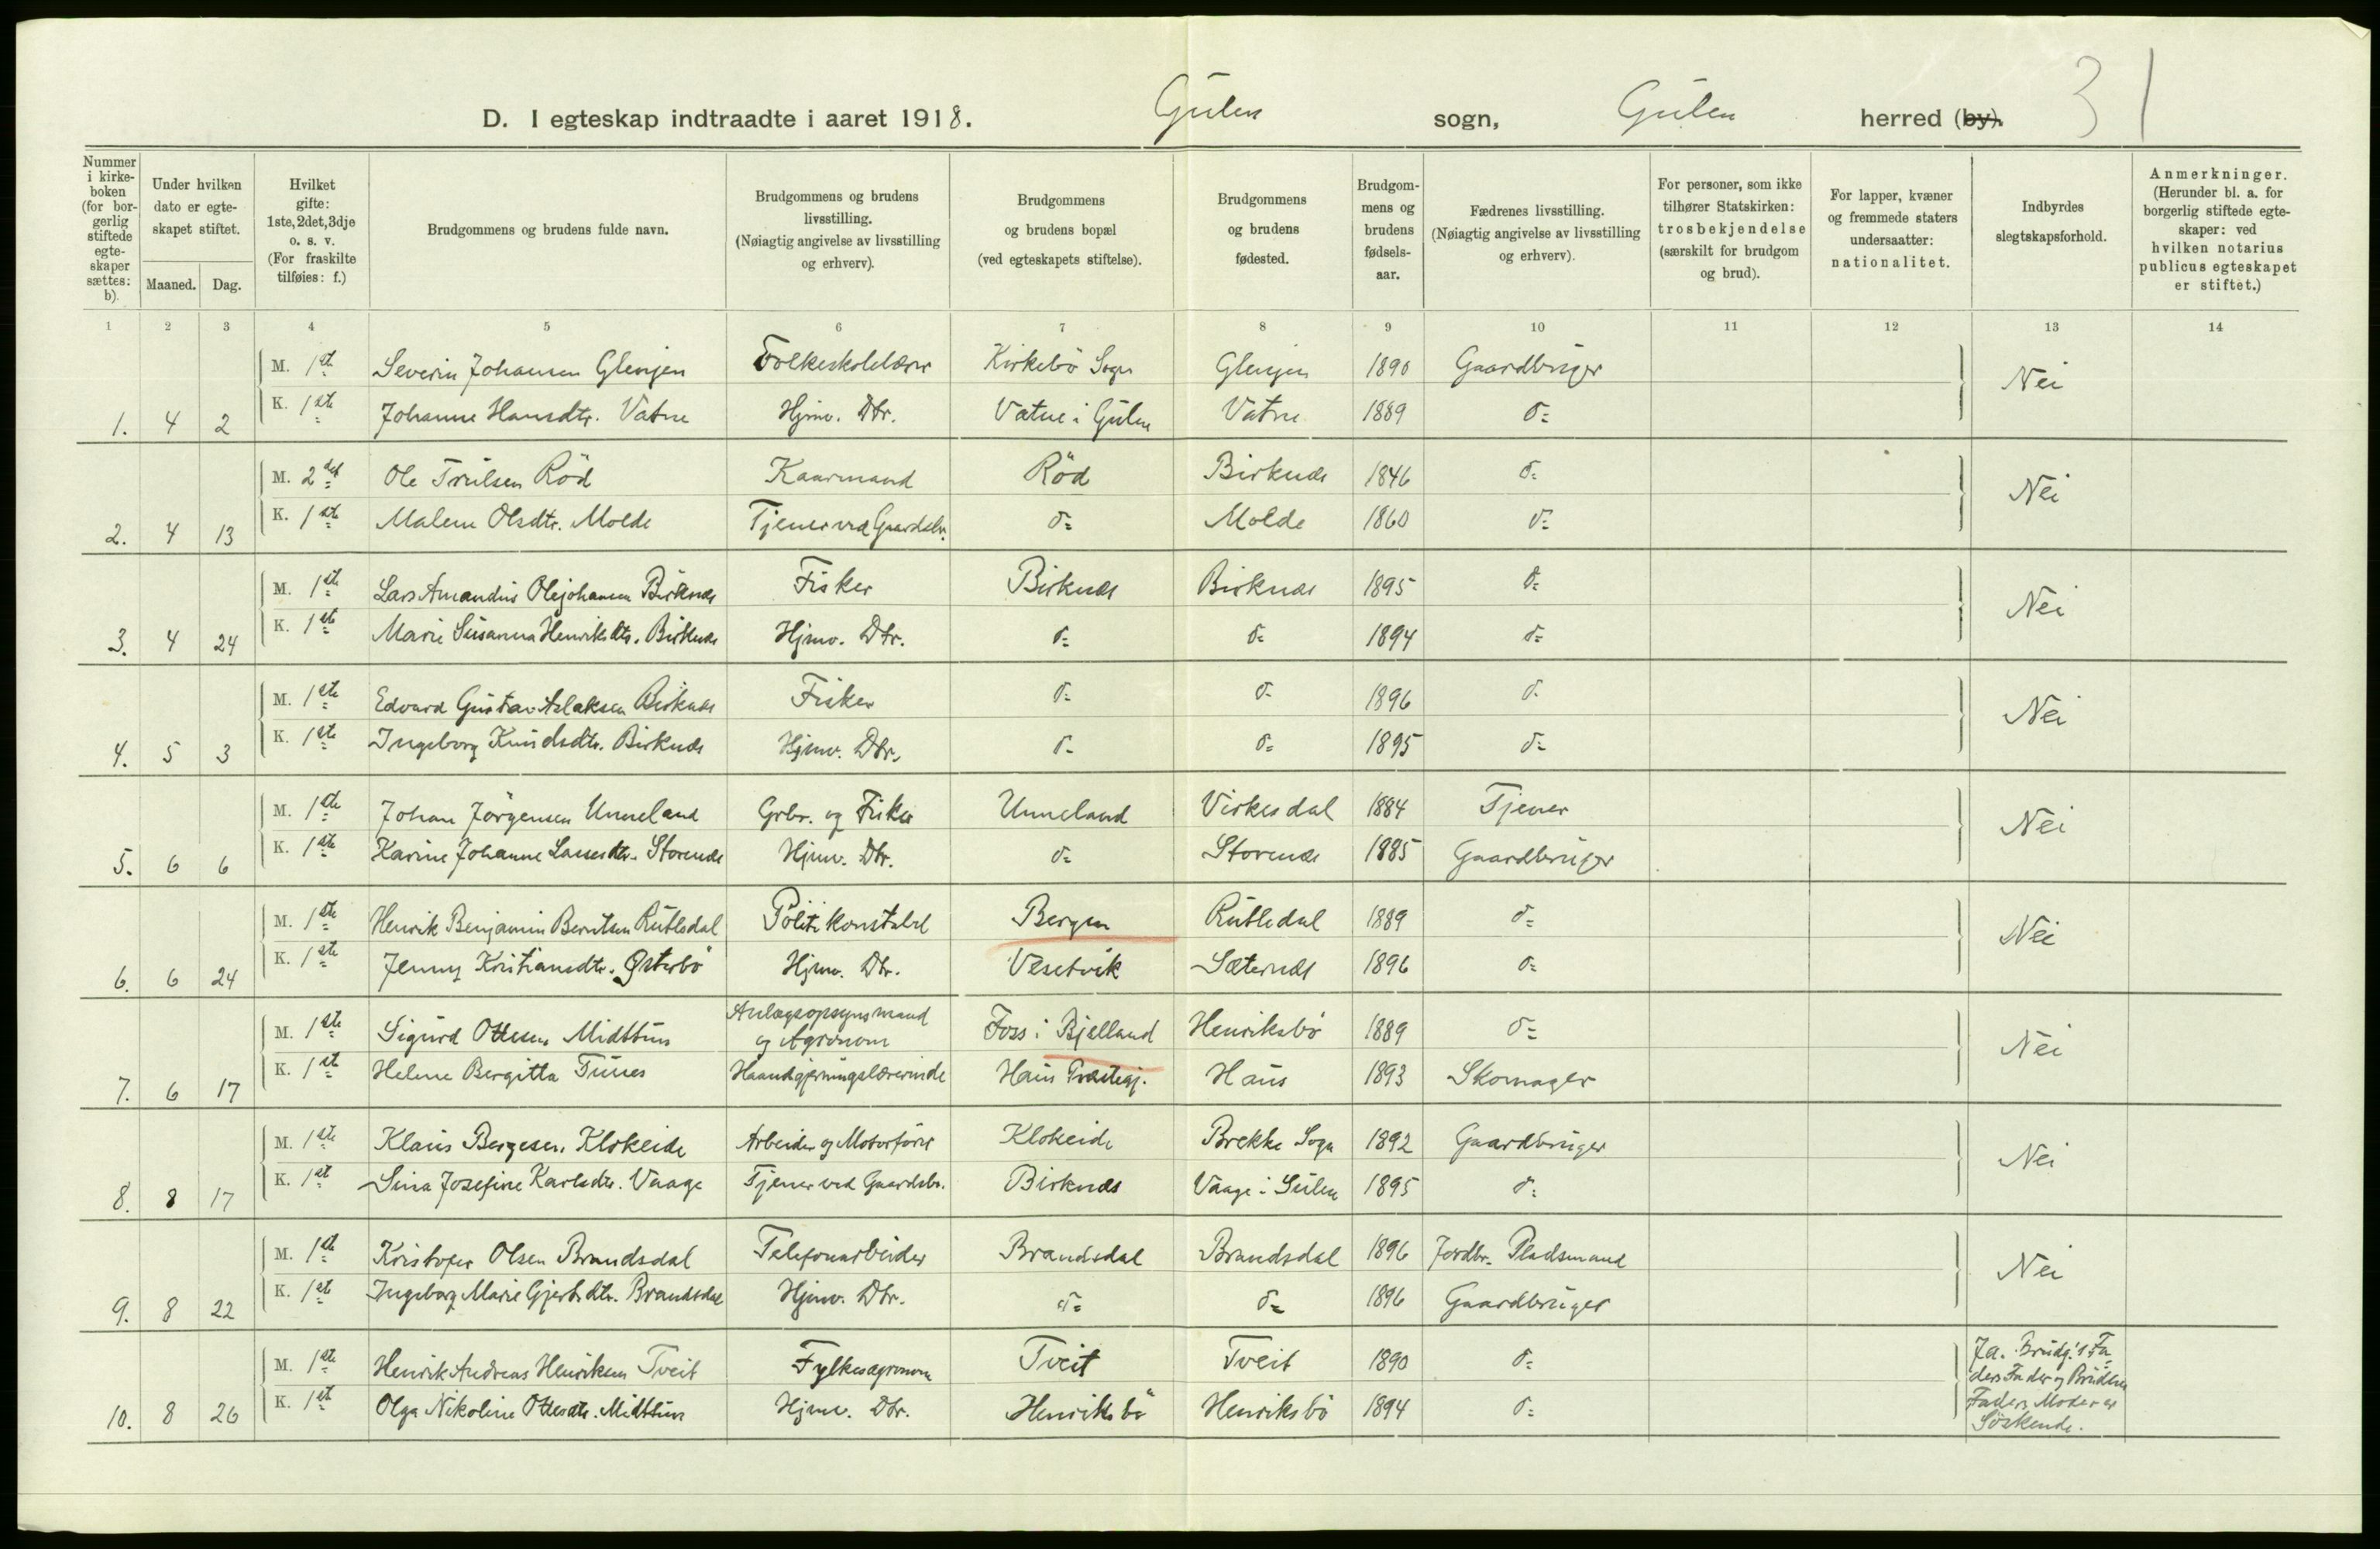 D. I egteskap indtraadte i aaret 1918. Gulen sogn, Gulen herred (by). 31
Nummer i kirkeboken (for borgerlig stiftede egteskaper sættes: b).
Under hvilken dato er egteskapet stiftet.
Maaned. Dag.
Hvilket gifte: 1ste, 2det, 3dje o. s. v. (For fraskilte tilføies: f.)
Brudgommens og brudens fulde navn.
Brudgommens og brudens livsstilling. (Nøiagtig angivelse av livsstilling og erhverv).
Brudgommens og brudens bopæl (ved egteskapets stiftelse).
Brudgommens og brudens fødested.
Brudgommens og brudens fødselsaar.
Fædrenes livsstilling. (Nøiagtig angivelse av livsstilling og erhverv).
For personer, som ikke tilhører Statskirken: trosbekjendelse (særskilt for brudgom og brud).
For lapper, kvæner og fremmede staters undersaatter: nationalitet.
Indbyrdes slegtskapsforhold.
Anmerkninger. (Herunder bl. a. for borgerlig stiftede egteskaper: ved hvilken notarius publicus egteskapet er stiftet.)
1 2 3 4 5 6 7 8 9 10 11 12 13 14
M. 1ste Severin Johansen Glenjen Folkeskolelærer Kirkebö Sogn Glenjen 1890 Gaardbruger Nei
1. 4 2 K. 1ste Johanne Hansdtr. Vatne Hjmv. Dtr. Vatne i Gulen Vatne 1889 do
M. 2det Ole Trulsen Röd Kaarmand Röd Birknæs 1846 do Nei
2. 4 13 K. 1ste Malene Olsdtr. Molde Tjener ved Gaardsbr. do Molde 1860 do
M. 1ste Lars Amandus Olejohansen Birknæs Fisker Birknæs Birknæs 1895 do Nei
3. 4 24 K. 1ste Marie Susanna Henriksdtr. Birknæs Hjmv. Dtr. do do 1894 do
M. 1ste Edvard Gustav Aslaksen Birknæs Fisker do do 1896 do Nei
4. 5 3 K. 1ste Ingeborg Knudsdtr. Birknæs Hjmv. Dtr. do do 1895 do
M. 1ste Johan Jörgensen Unneland Grbr. og Fisker Unneland Virkesdal 1884 Tjener Nei
5. 6 6 K. 1ste Karine Johanne Lassesdtr. Storenæs Hjmv. Dtr. do Storenæs 1885 Gaardbruger
M. 1ste Henrik Benjamin Berntsen Rutledal Politikonstabel Bergen Rutledal 1889 do Nei
6. 6 24 K. 1ste Jenny Kristiansdtr. Østerbö Hjmv. Dtr. Vesetvik Sæternæs 1896 do
M. 1ste Sigurd Ottesen Midttun Anlægsopsynsmand og Agronom Foss i Bjelland Henriksbö 1889 do Nei
7. 6 17 K. 1ste Helene Bergitta Tunes Haandgjerningslærerinde Haus Præstegj. Haus 1893 Skomager
M. 1ste Klaus Bergesen Klokeide Arbeider og Motorförer Klokeide Brekke Sogn 1892 Gaardbruger Nei
8. 8 17 K. 1ste Sina Josefine Karlsdtr. Vaage Tjener ved Gaardsbr. Birknæs Vaage i Sulen 1895 do
M. 1ste Kristofer Olsen Brandsdal Telefonarbeider Brandsdal Brandsdal 1896 Jordbr. Pladsmand Nei
9. 8 22 K. 1ste Ingeborg Marie Gjertsdtr. Brandsdal Hjmv. Dtr. do do 1896 Gaardbruger
M. 1ste Henrik Andreas Henriksen Tveit Fylkesagronom Tveit Tveit 1890 do Ja. Brudg.'s Faders Fader og Brudens Faders Moder er Söskende.
10. 8 26 K. 1ste Olga Nikoline Ottesdtr. Midttun Hjmv. Dtr. Henriksbö Henriksbö 1894 do